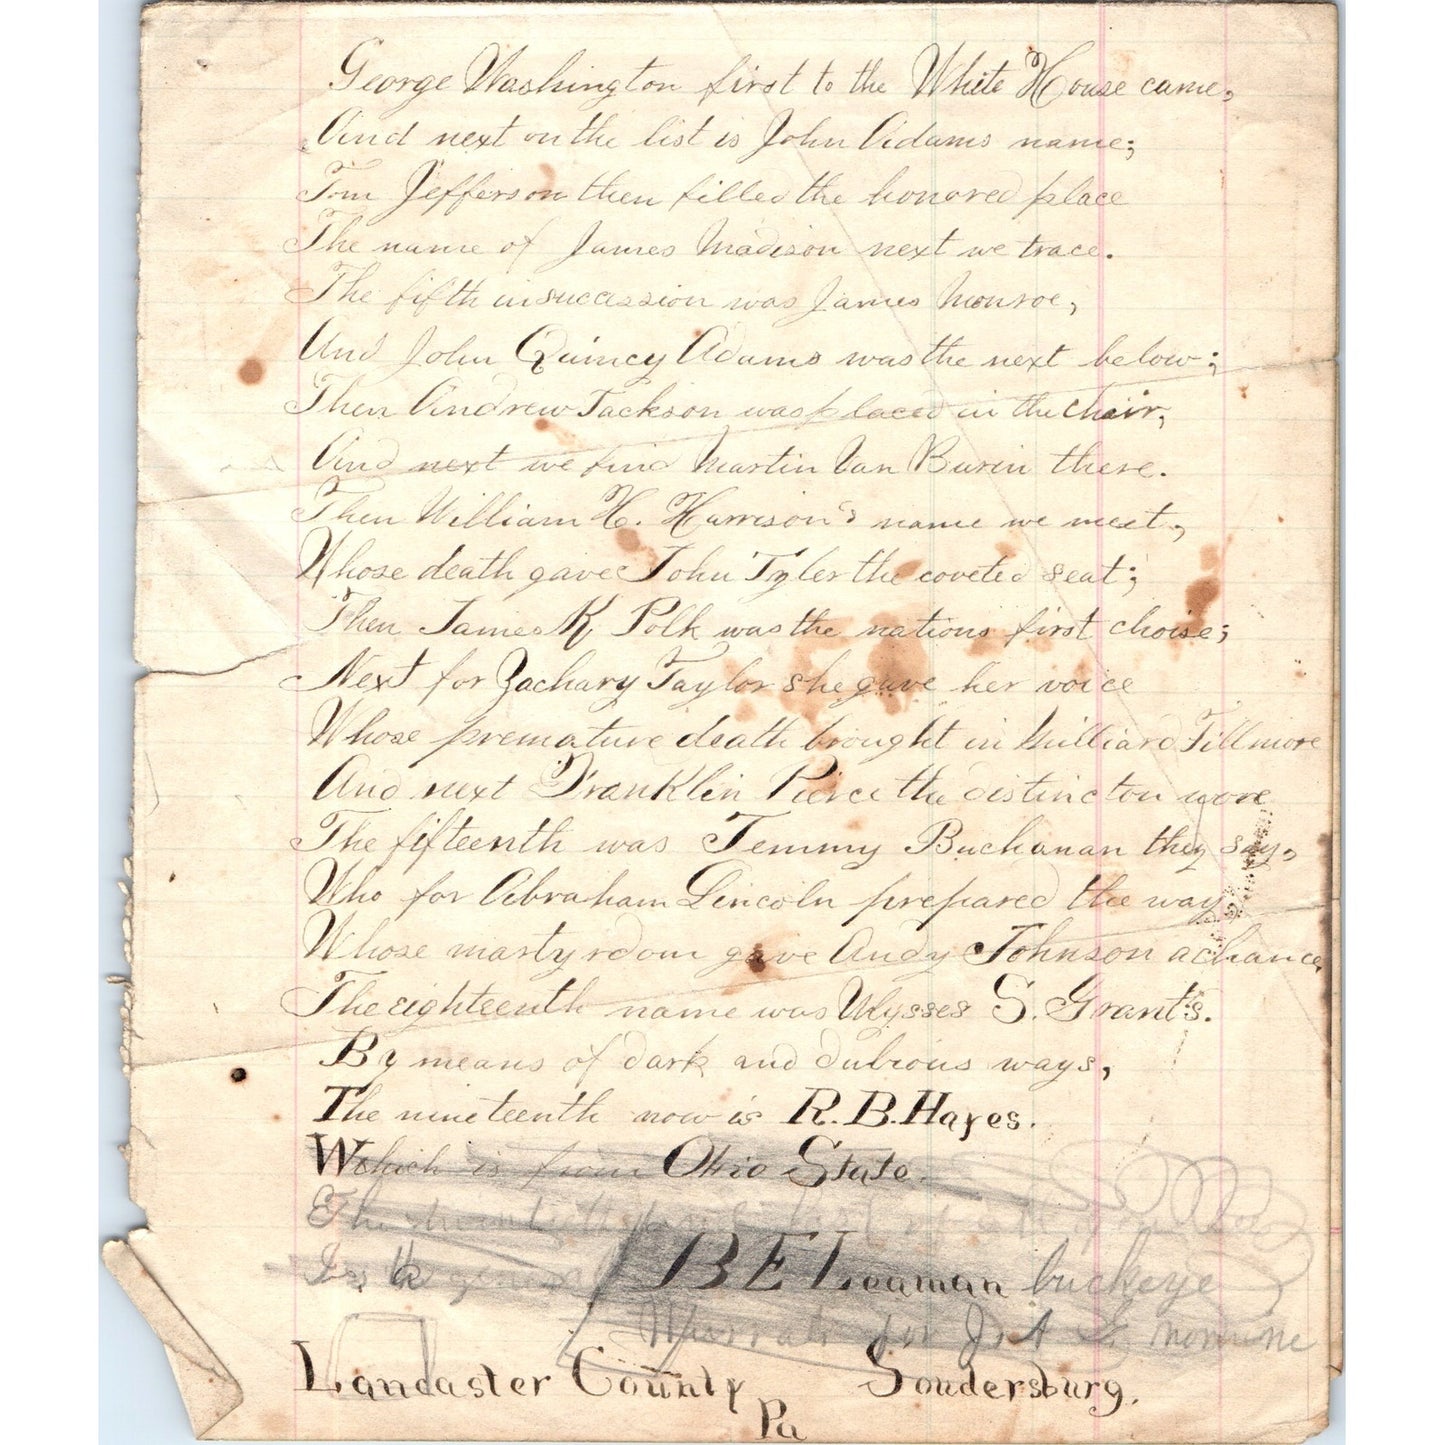 George Washington first to the White House came,
And next on the list is John Adams name;
Tom Jefferson then filled the honored place
The name of James Madison next we trace.
The fifth in sucession was James Monroe,
And John Quincy Adams was the next below;
Then Andrew Jackson was placed in the chair,
And next we find Martin Van Burin there.
Then William H. Harrison's name we meet,
Whose death gave John Tyler the coveted seat;
Then James K Polk was the nations first choise;
Next for Zachary Taylor she gave her voice
Whose premature death brought in Milliard Fillmore
And next Franklin Pierce the distincton wore
The fifteenth was Jemmy Buchanan they say,
Who for Abraham Lincoln prepared the way
Whose martyrdom gave Andy Johnson a chance,
The eighteenth name was Ulysses S. Grant's.
By means of dark and dubious ways,
The nineteenth now is R.B. Hayes.
Which is from Ohio State.
The
B E Leaman buckeye
for
Lancaster County Soudersburg.
Pa